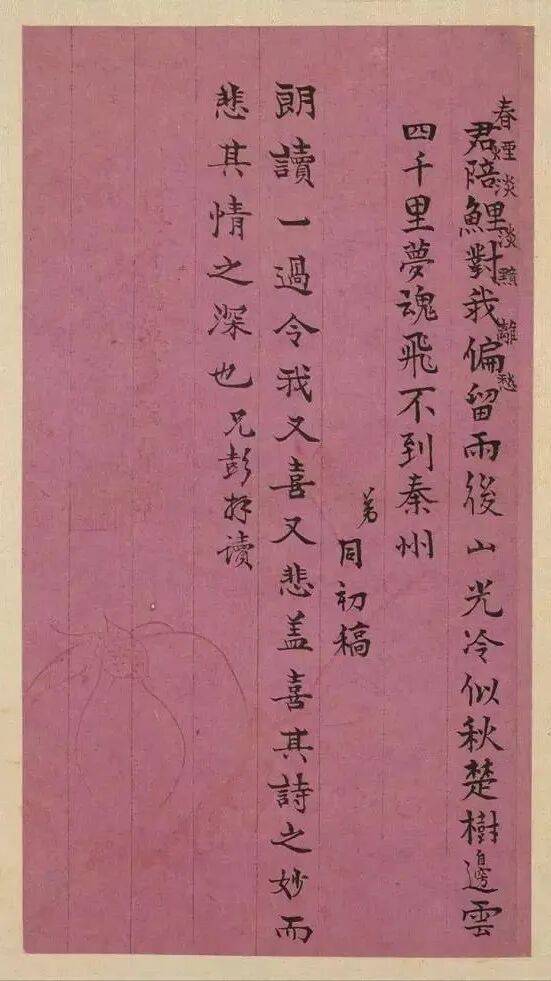 春煙淡淡黯離愁
君陪鯉對我偏留雨後山光冷似秋楚樹邊雲
四千里夢魂飛不到秦州
弟同初稿
朗讀一過令我又喜又悲盖喜其詩之妙而
悲其情之深也兄彭拜读